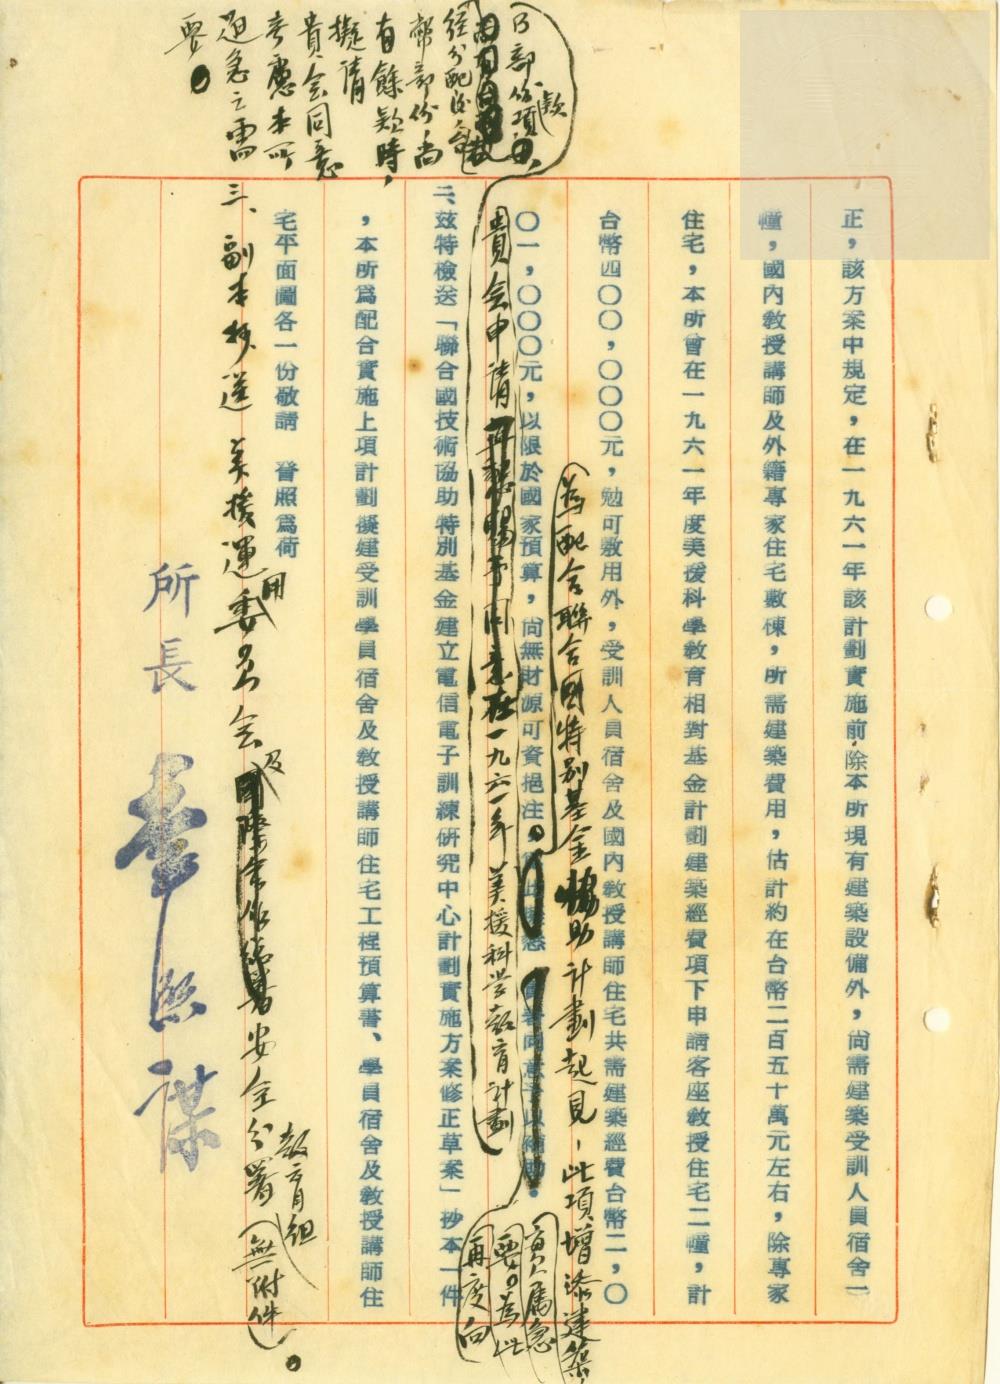 正，該方案中規定，在一九六一年該計劃實施前，除本所現有建築設備外，尚需建築受訓人員宿舍一
幢，國內教授講師及外籍專家住宅數棟，所需建築費用，估計約在台幣二百五十萬元左右，除專家
住宅，本所曾在一九六一年度美援科學教育相對基金計劃建築經費項下申請客座教授住宅二幢，計
台幣四〇〇，〇〇〇元，勉可敷用外，受訓人員宿舍及國內教授講師住宅共需建築經費台幣二，〇
為配合聯合國特別基金協助計劃起見，此項增添建築，
實屬急
要。為此
再度向
〇一，〇〇〇元，以限於國家預算，尚無財源可資挹注。
貴會申請
賜予同意在一九六一年美援科學教育計劃
乃部份項
款
經分配後
部份尚
有餘款時，
擬請
貴會同意
考慮本所
迫急之需
要。
二、茲特檢送「聯合國技術協助特別基金建立電信電子訓練研究中心計劃實施方案修正草案」抄本一件
，本所為配合實施上項計劃擬建受訓學員宿舍及教授講師住宅工程預算書、學員宿舍及教授講師住
宅平面圖各一份敬請　詧照為荷
三、副本抄送　美援運用委員會及
安全分署教育組（無附件）。
所長　熙謀